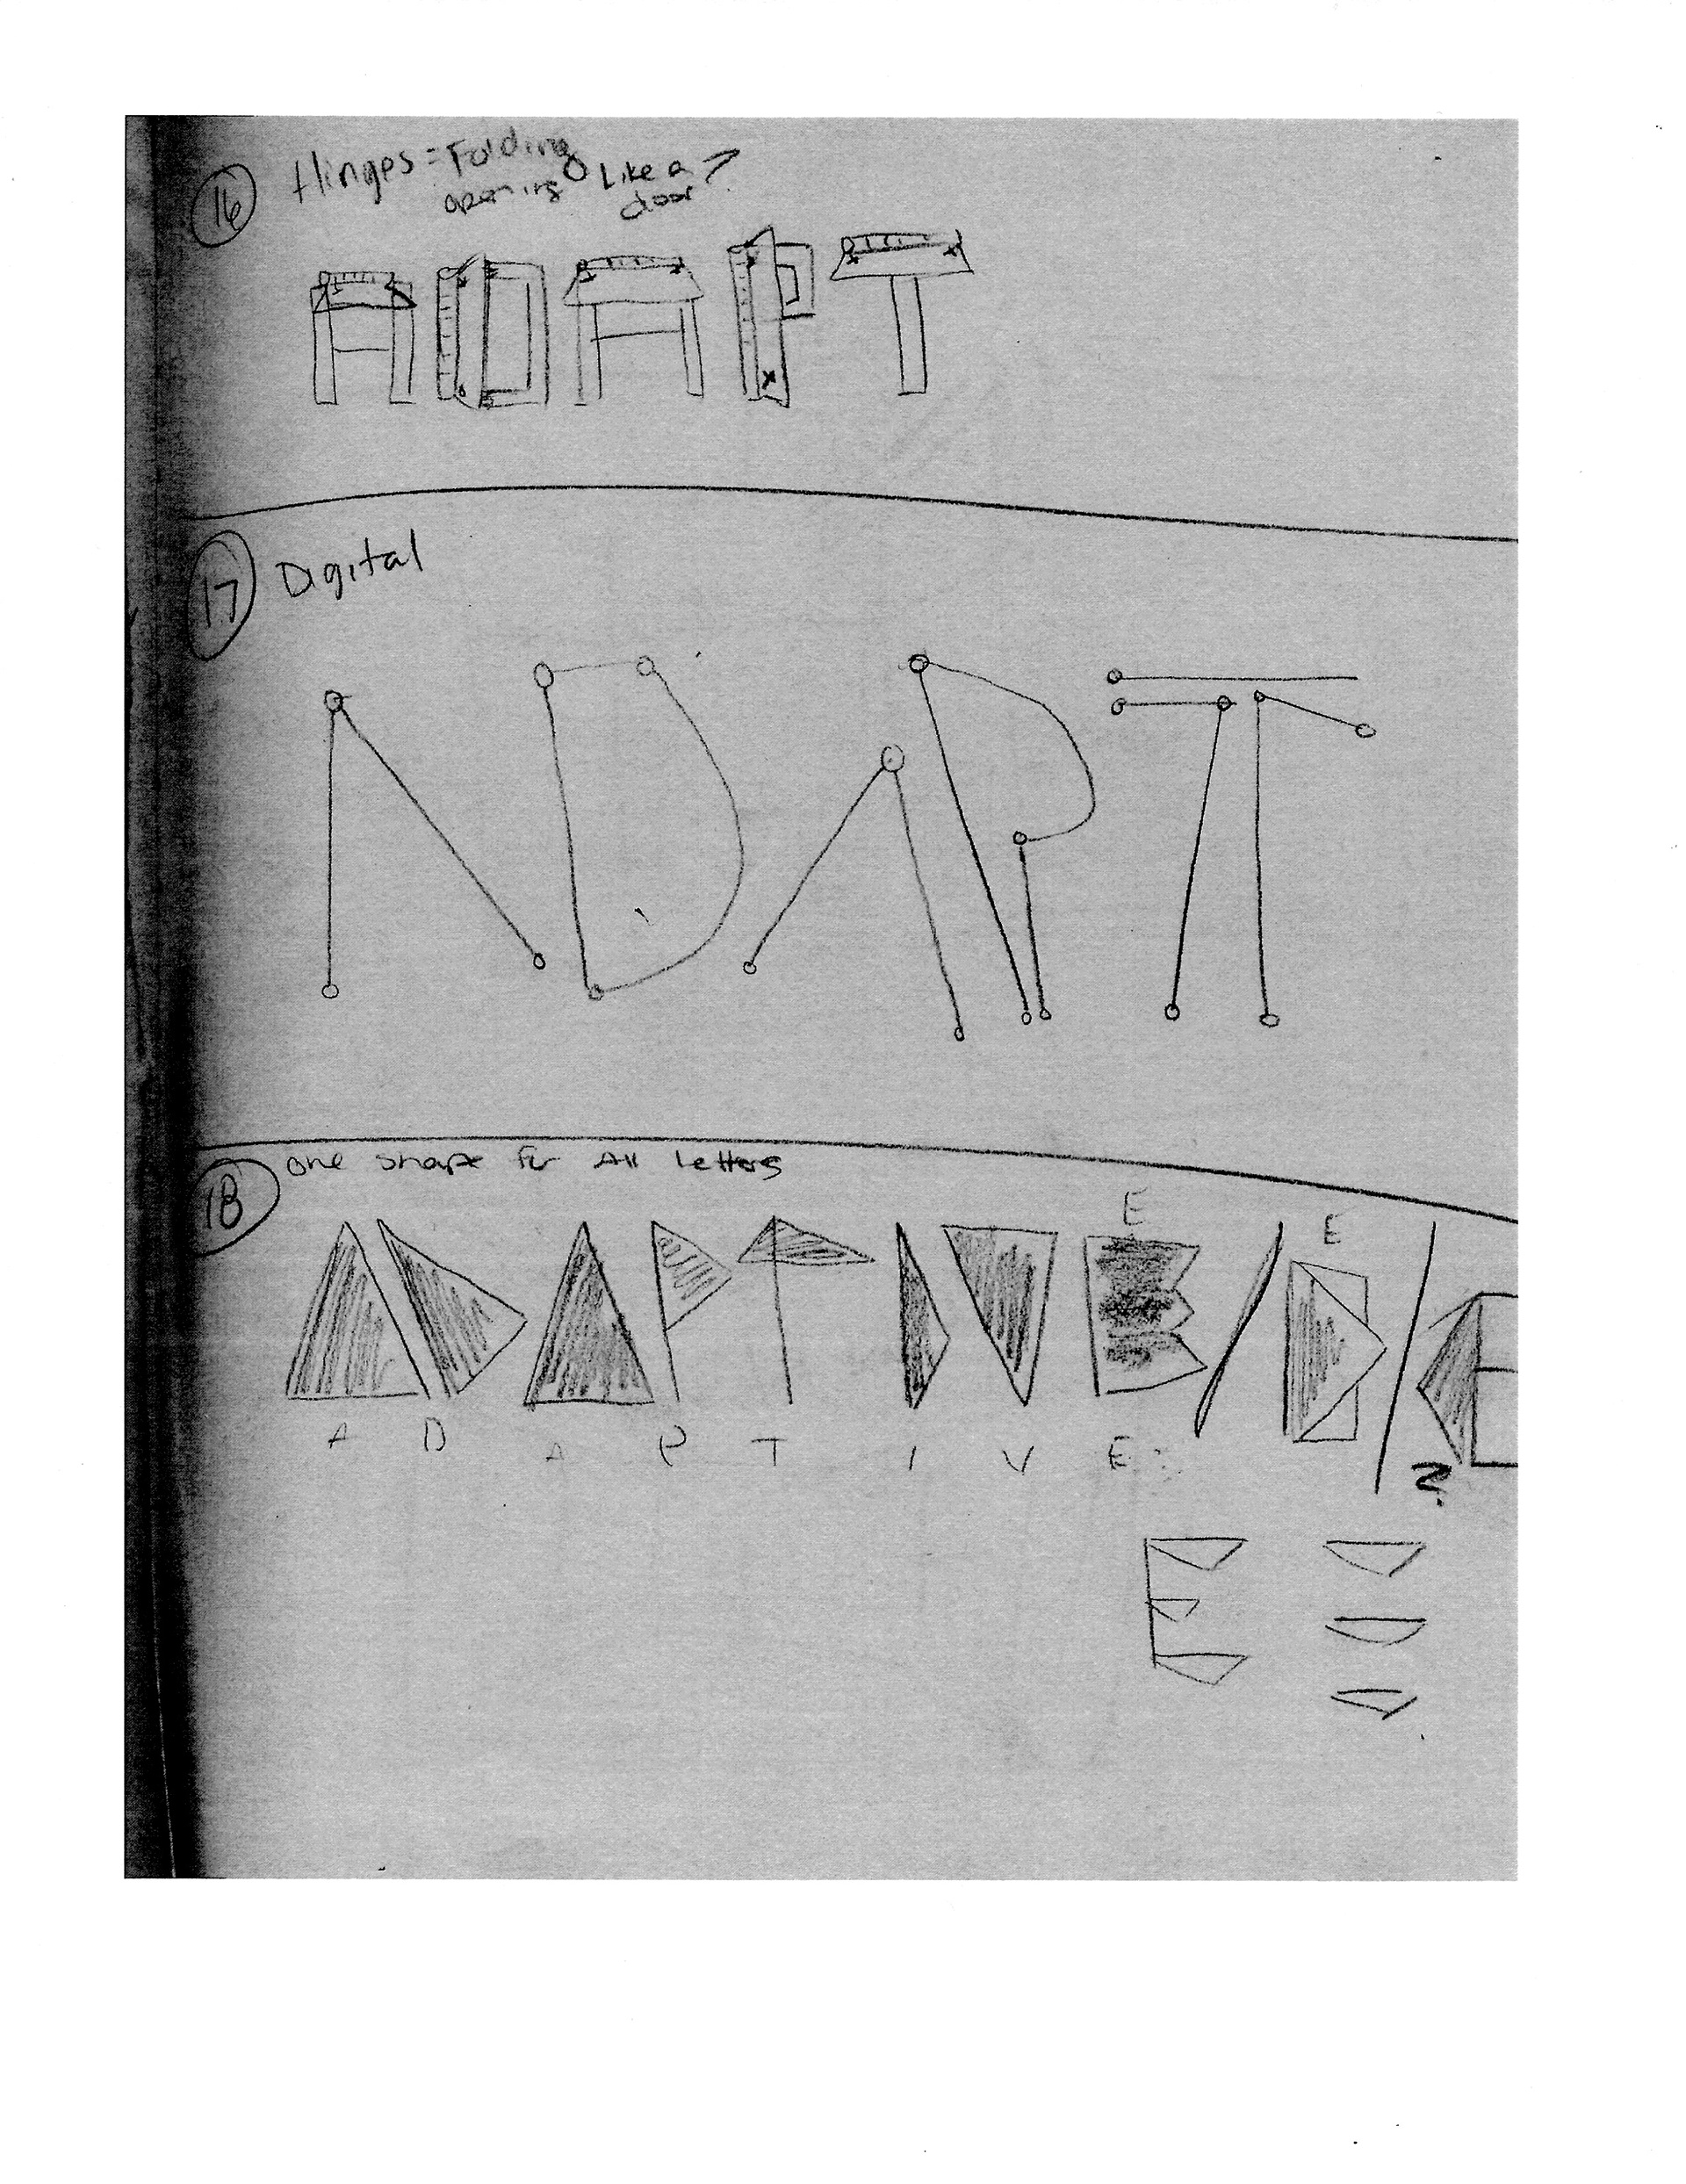 16 Hinges = Folding
opening Like a ?
door
ADAPT
17 Digital
ADAPT
18 One Shape for All Letters
E E
ADAPTIVE
A D A P T I V E
?
E